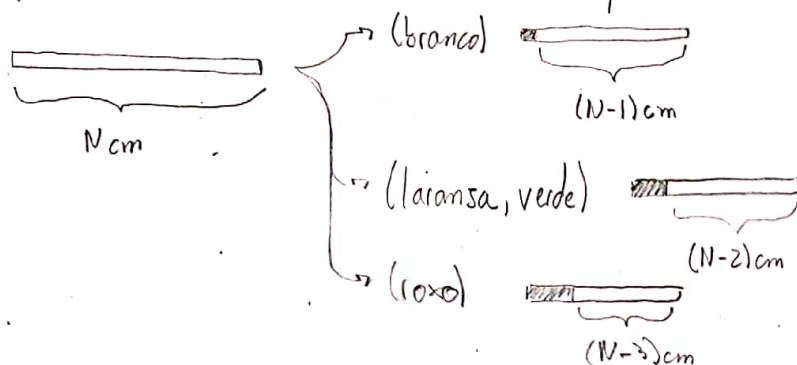 (branco)
(N-1)cm
N cm
(laranja, verde)
(N-2)cm
(roxo)
(N-3)cm